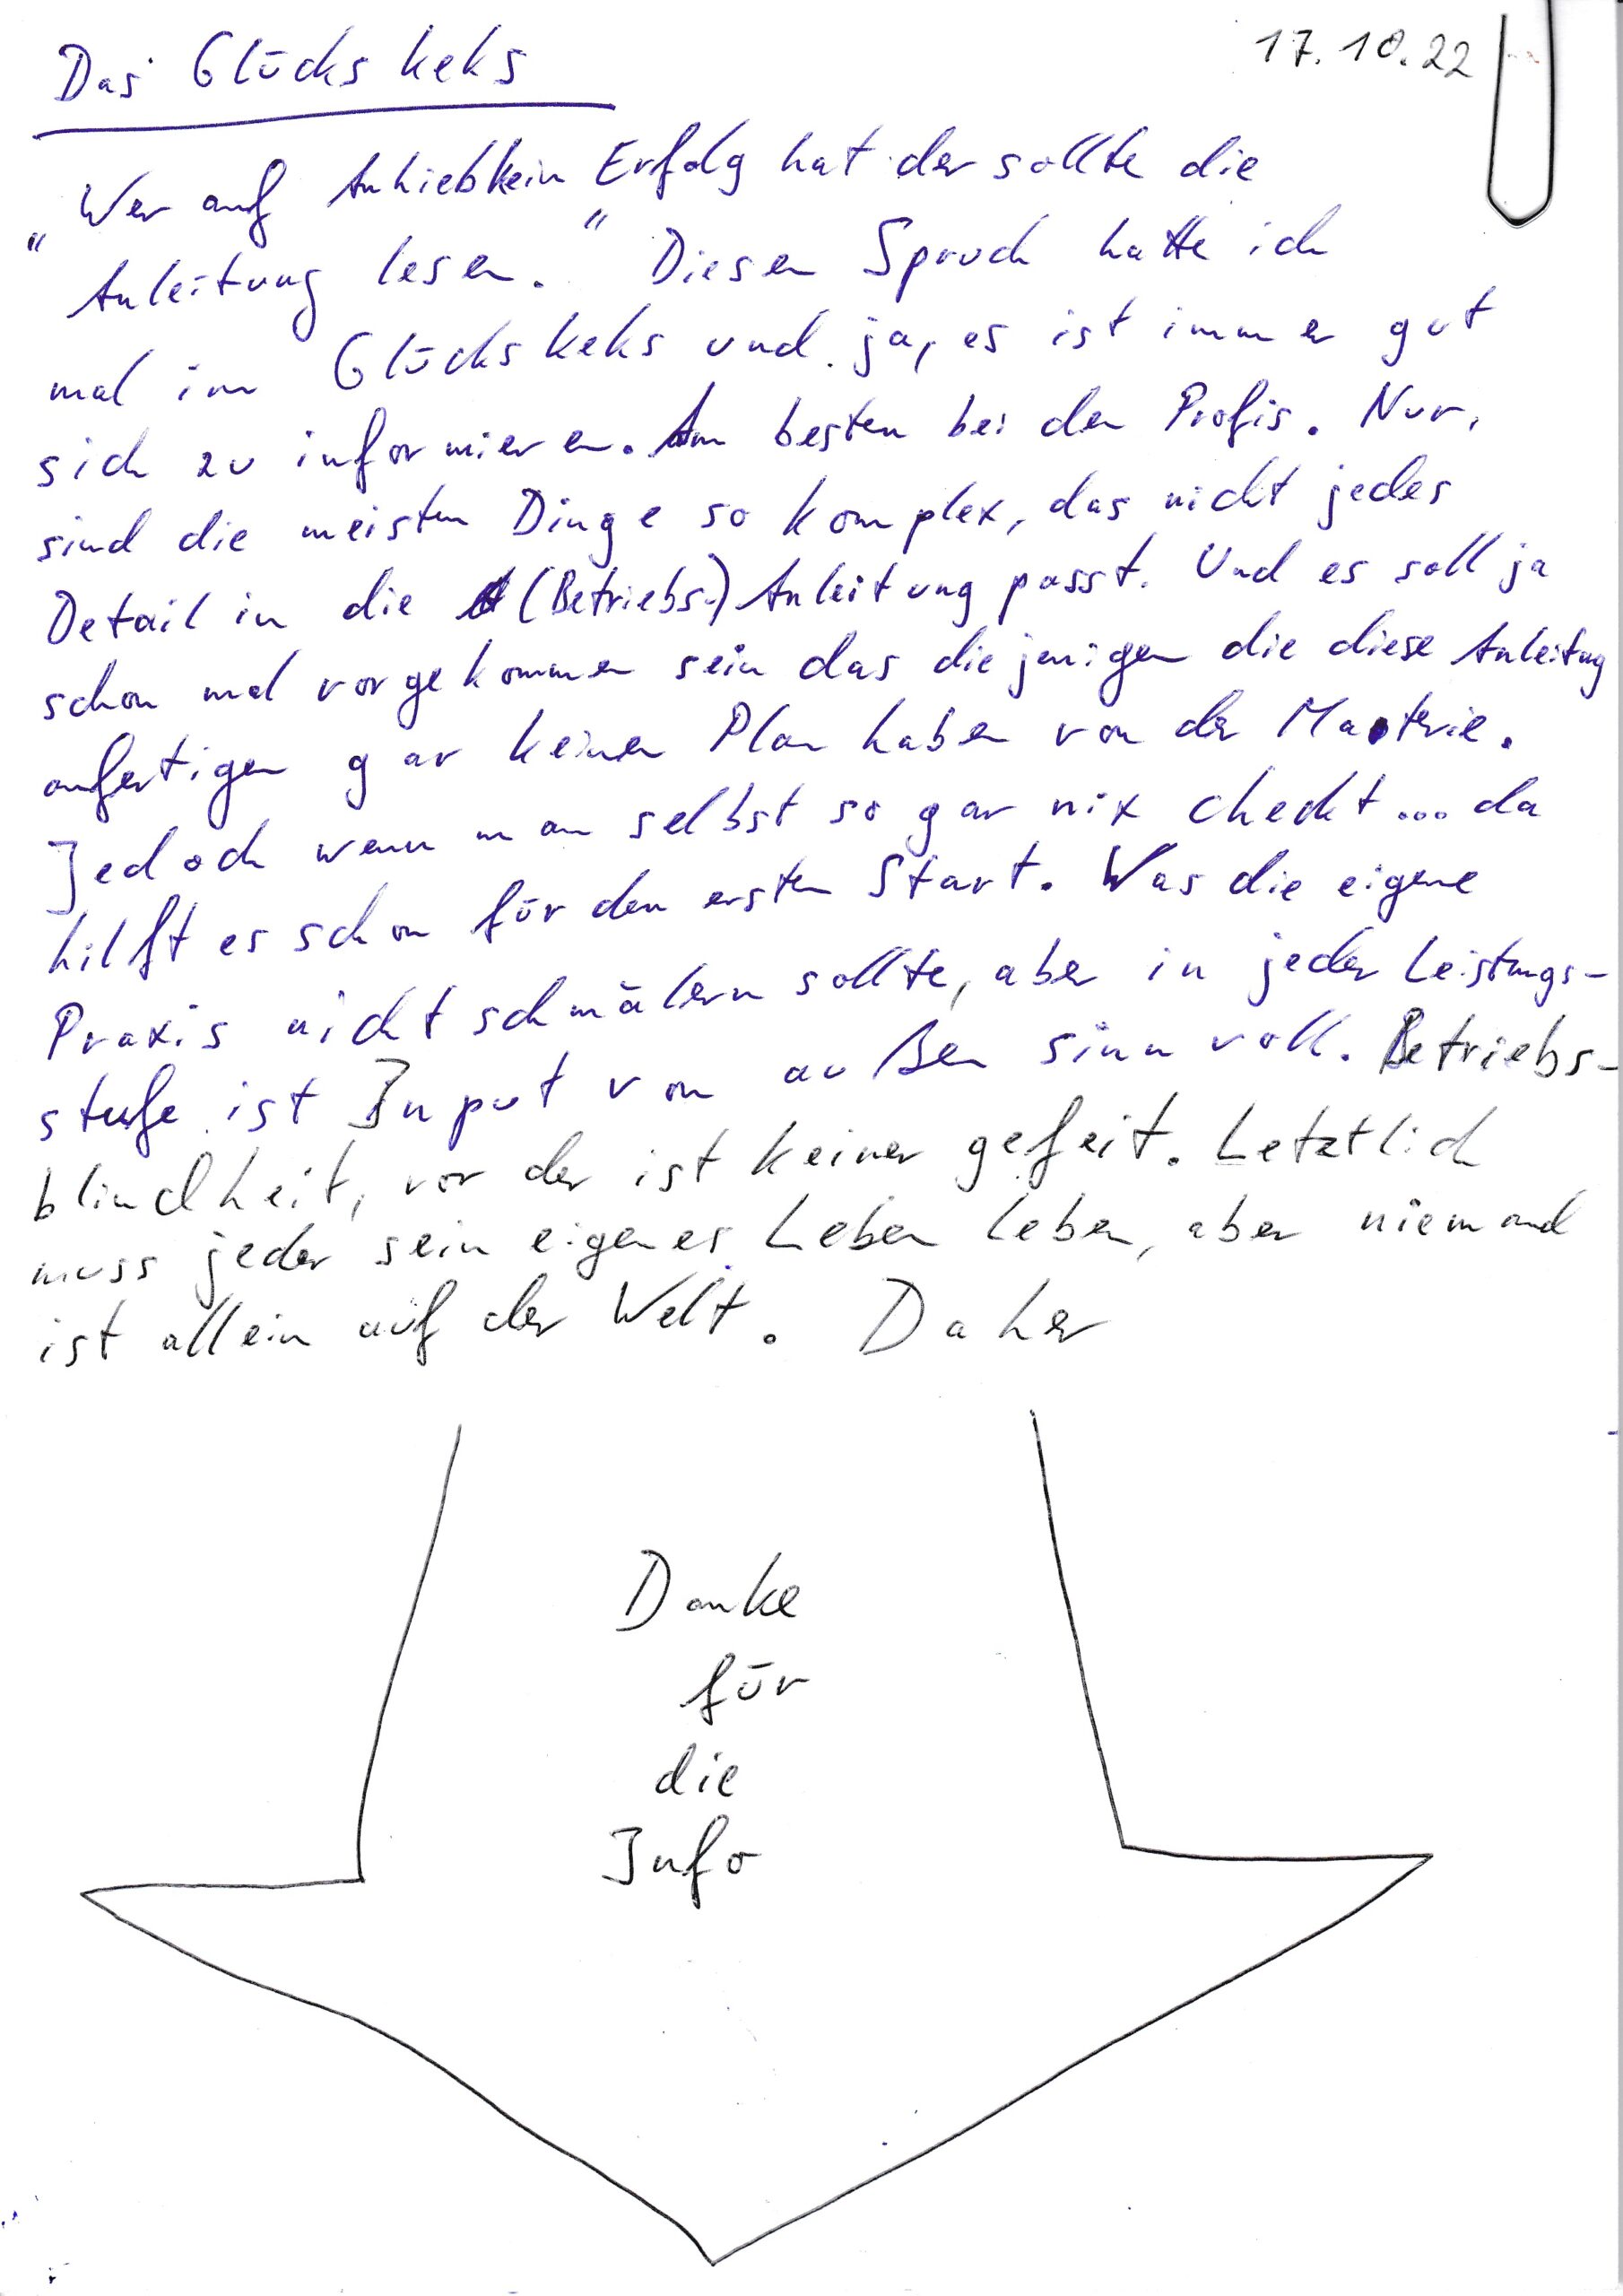 Das Glückskeks
17.10.22
"Wer auf Anhieb kein Erfolg hat der sollte die
Anleitung lesen." Diesen Spruch hatte ich
mal im Glückskeks und ja, es ist immer gut
sich zu informieren. Am besten bei den Profis. Nur,
sind die meisten Dinge so komplex, das nicht jedes
Detail in die (Betriebs-) Anleitung passt. Und es soll ja
schon mal vorgekommen sein das diejenigen die diese Anleitung
anfertigen gar keinen Plan haben von der Materie.
Jedoch wenn man selbst so gar nix checkt... da
hilft es schon für den ersten Start. Was die eigene
Praxis nicht schmälern sollte, aber in jeder Leistungs-
stufe ist Input von außen sinnvoll. Betriebs-
blindheit, vor der ist keiner gefeit. Letztlich
muss jeder sein eigenes Leben leben, aber niemand
ist allein auf der Welt. Daher
Danke
für
die
Info